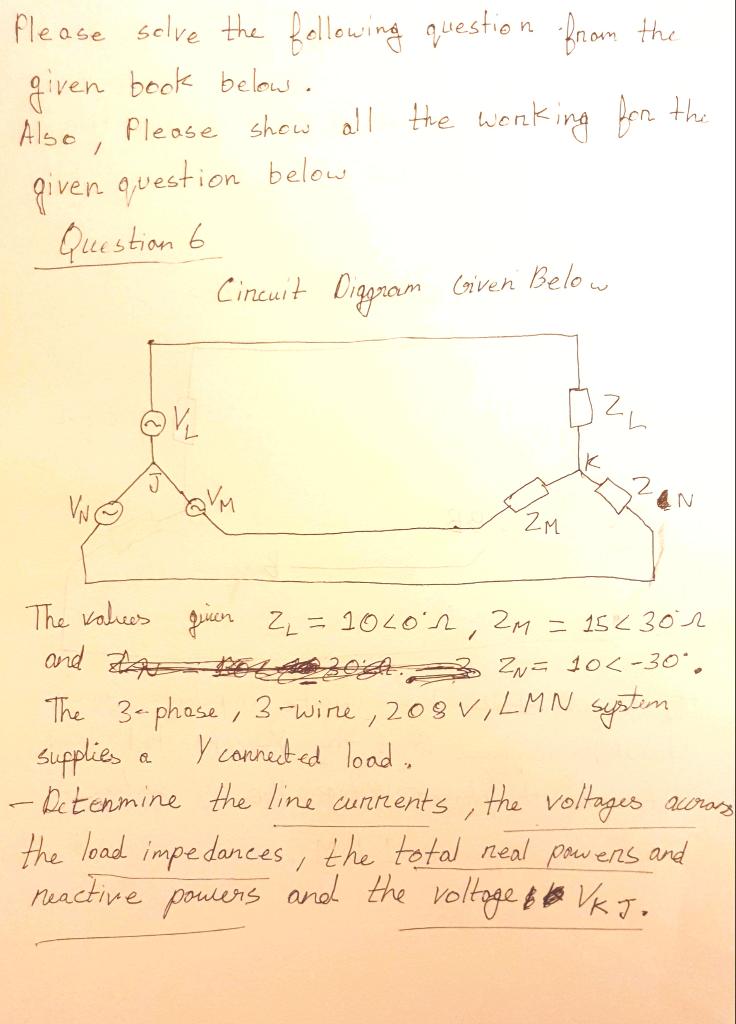 Please solve the following question from the
given book below.
Also, Please show all the working for the
given question below
Question 6
Circuit Diggram Given Below
VL
ZL
J
K
VN
VM
ZM
ZN
The values given ZL = 10<0°Ω, ZM = 15<30°Ω
and ZN = 10<-30°.
The 3-phase, 3-wire, 208 V, LMN system
supplies a Y connected load.
- Determine the line currents, the voltages across
the load impedances, the total real powers and
reactive powers and the voltage VKJ.